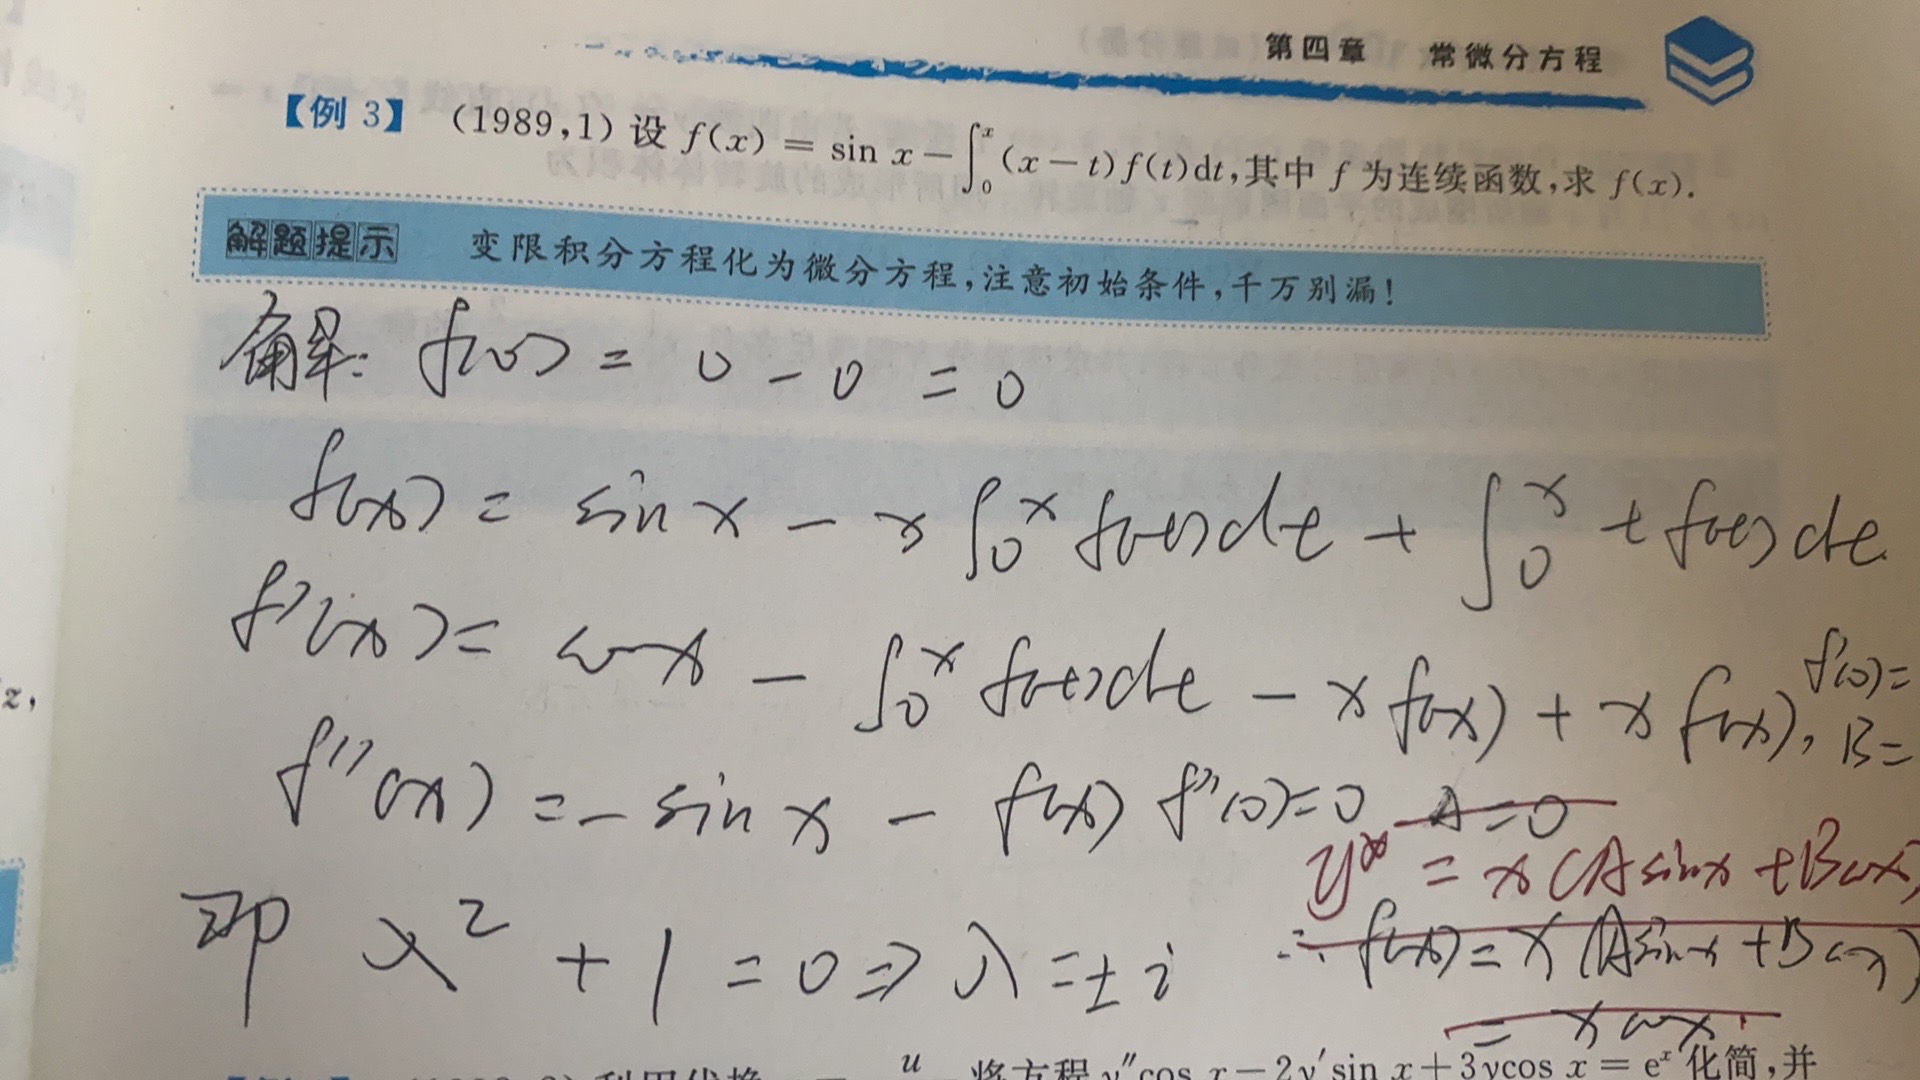 第四章 常微分方程
【例 3】 (1989,1) 设 f(x) = sin x − ∫₀ˣ (x − t) f(t)dt,其中 f 为连续函数,求 f(x).
解题提示 变限积分方程化为微分方程,注意初始条件,千万别漏!
解: f(0) = 0 − 0 = 0
f(x) = sin x − x ∫₀ˣ f(t)dt + ∫₀ˣ t f(t)dt.
f'(x) = cos x − ∫₀ˣ f(t)dt − x f(x) + x f(x), f'(0)=
B=
f''(x) = − sin x − f(x) f''(0)=0 A=0
y* = x (A sin x + B cos x)
即 λ² + 1 = 0 ⇒ λ = ± i
∴ f(x) = x (A sin x + B cos x)
= x cos x.
u
将方程 y″cos x − 2y′sin x + 3ycos x = eˣ 化简,并
z,